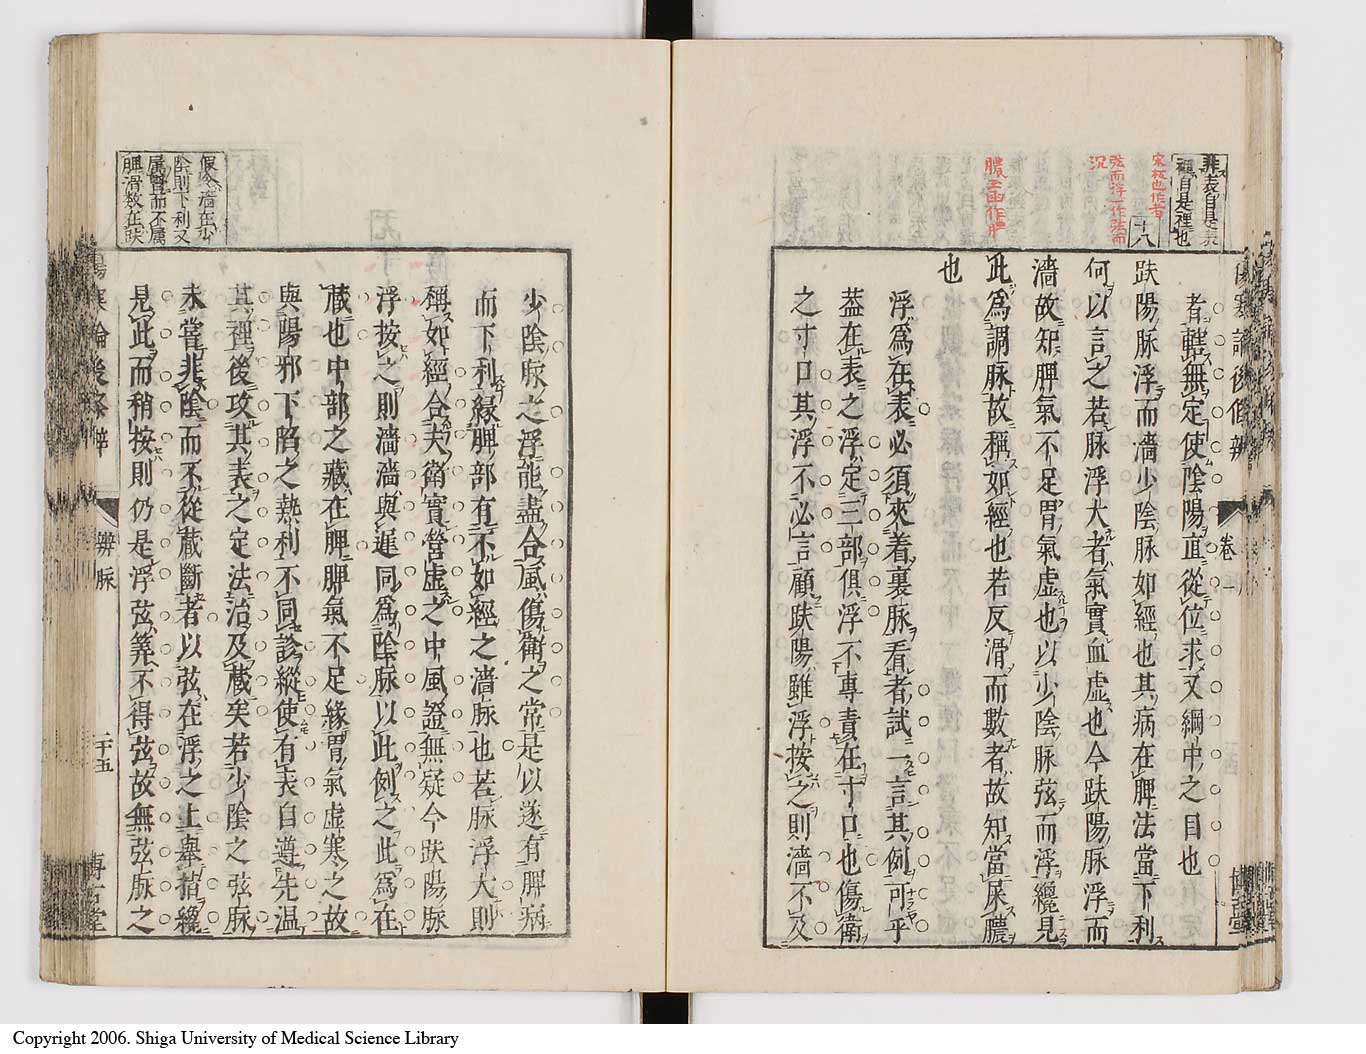 傷寒論後條辨
卷一
博古堂
非表自是表
裡自是裡也
十八
宋板也作者
弦而浮一作弦而
沉
膿玉函作肥
者轄無定使陰陽直從位求又綱中之目也
趺陽脉浮而濇少陰脉如經也其病在脾法當下利
何以言之若脉浮大者氣實血虛也今趺陽脉浮而
濇故知脾氣不足胃氣虛也以少陰脉弦而浮纔見
此爲調脉故稱如經也若反滑而數者故知當屎膿
也
浮爲在表必須來看裏脉看者試一言其例可乎
葢在表之浮定三部俱浮不專責在寸口也傷衛
之寸口其浮不必言顧趺陽雖浮按之則濇不及
假令濇在少
陰則下利又
属腎而不属
脾滑數在趺
少陰脉之浮能盡合風傷衛之常是以遂有脾病
而下利緣脾部有不如經之濇脉也若脉浮大則
稱如經合夫衛實營虛之中風證無疑今趺陽脉
浮按之則濇濇與遲同爲陰脉以此例之此爲在
藏也中部之藏在脾脾氣不足緣胃氣虛寒之故
與陽邪下陷之熱利不同診縱使有表自遵先温
其裡後攻其表之定法治及藏矣若少陰之弦脉
未嘗非陰而不從藏斷者以弦在浮之上舉指纔
見此而稍按則仍是浮弦筭不得弦故無弦脉之
傷寒論後條辨
辨脉
二十五
博古堂
Copyright 2006. Shiga University of Medical Science Library